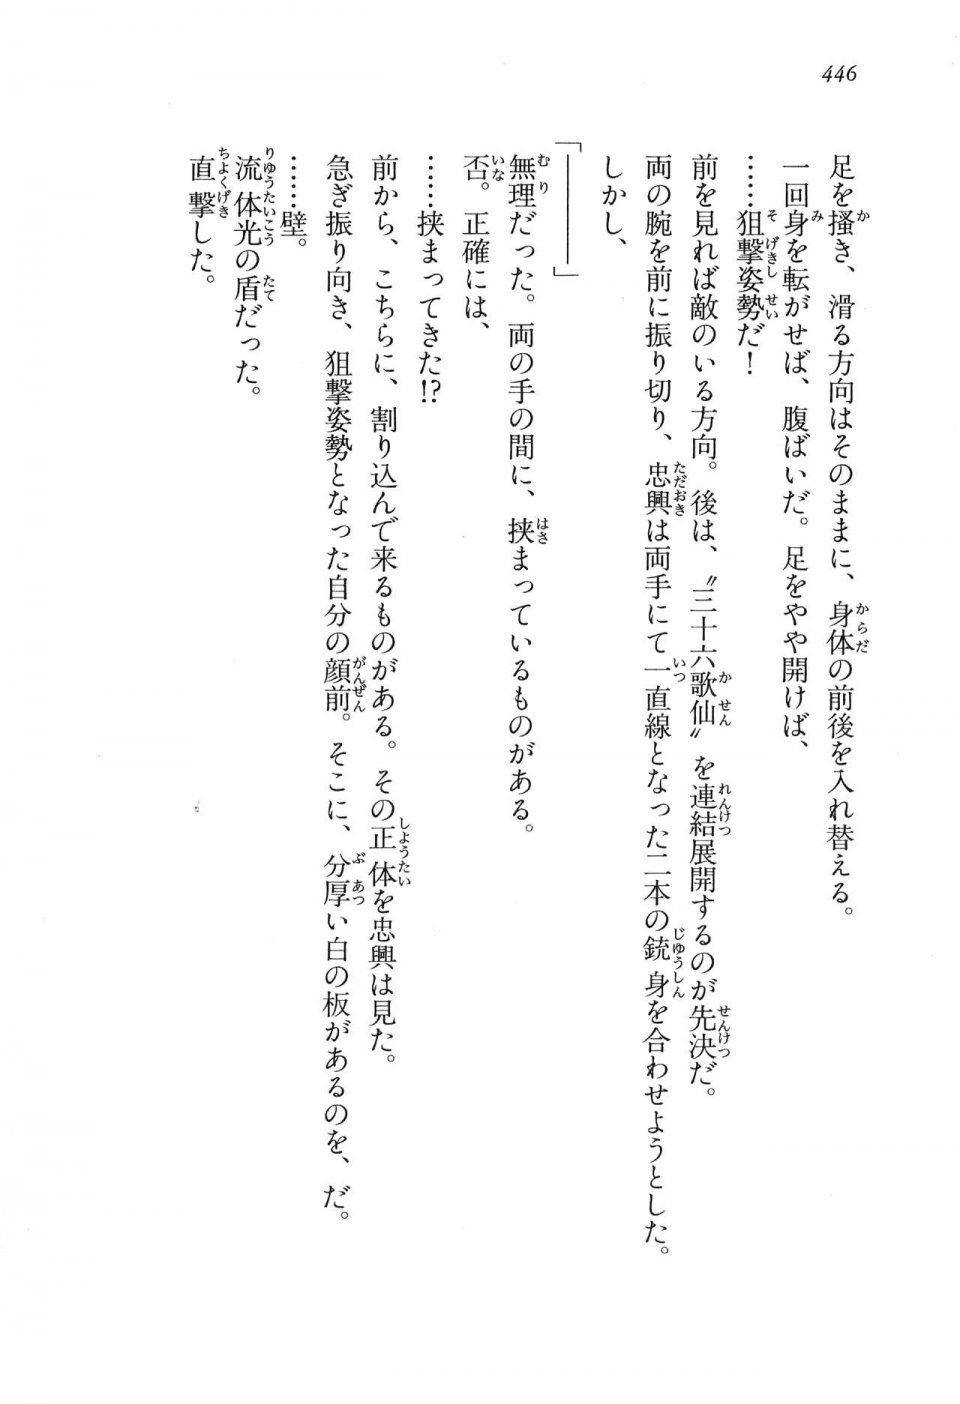 446
足を掻き、滑る方向はそのままに、身体の前後を入れ替える。
一回身を転がせば、腹ばいだ。足をやや開けば、
……狙撃姿勢だ！
前を見れば敵のいる方向。後は、〝三十六歌仙〟を連結展開するのが先決だ。
両の腕を前に振り切り、忠興は両手にて一直線となった二本の銃身を合わせようとした。
しかし、
「――――」
無理だった。両の手の間に、挟まっているものがある。
否。正確には、
……挟まってきた!?
前から、こちらに、割り込んで来るものがある。その正体を忠興は見た。
急ぎ振り向き、狙撃姿勢となった自分の顔前。そこに、分厚い白の板があるのを、だ。
……壁。
流体光の盾だった。
直撃した。